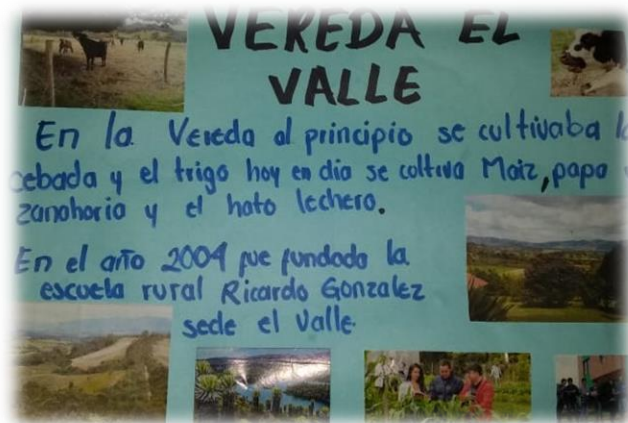 VEREDA EL
VALLE
En la Vereda al principio se cultivaba la
cebada y el trigo hoy en dia se coltiva Maiz, papa y
zanahoria y el hato lechero.
En el año 2004 fue fundada la
escuela rural Ricardo Gonzalez
sede el Valle.